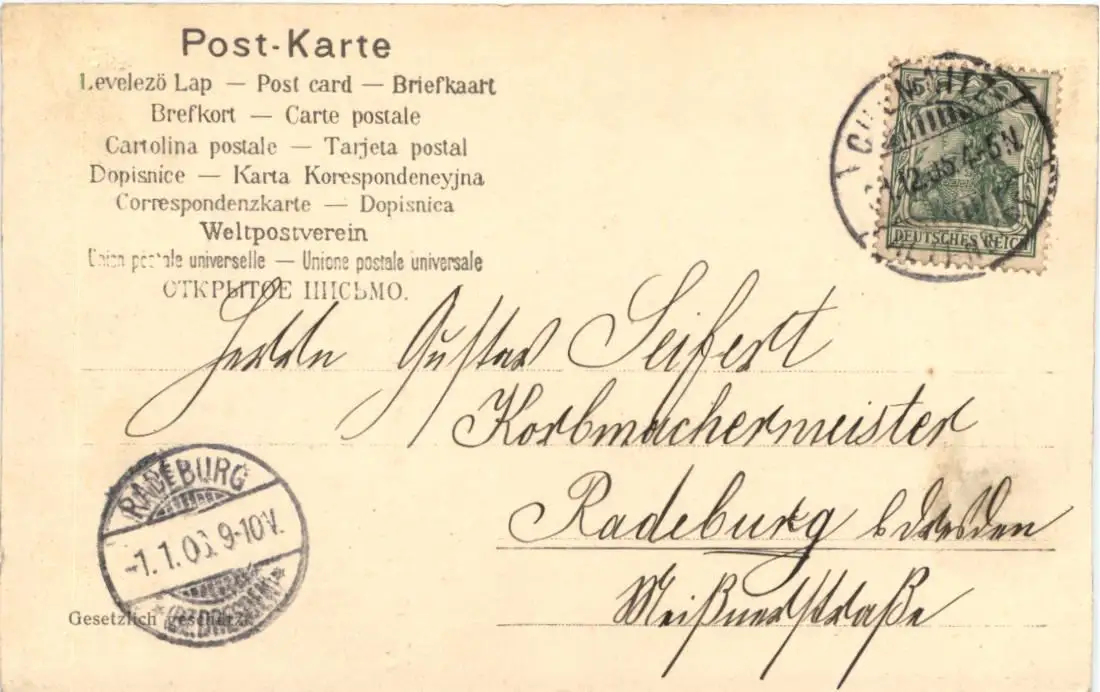 Post-Karte
Levelező Lap — Post card — Briefkaart
Brefkort — Carte postale
Cartolina postale — Tarjeta postal
Dopisnice — Karta Korespondeneyjna
Correspondenzkarte — Dopisnica
Weltpostverein
Union postale universelle — Unione postale universale
ОТКРЫТОЕ ПИСЬМО.
CHEMNITZ
12.05.4-5N.
5
DEUTSCHES REICH
Herrn Gustav Seifert
Korbmachermeister
Radeburg b Dresden
Meißnerstraße
RADEBURG
-1.1.06 9-10V.
*(BZ.DRESDEN)*
Gesetzlich geschützt.